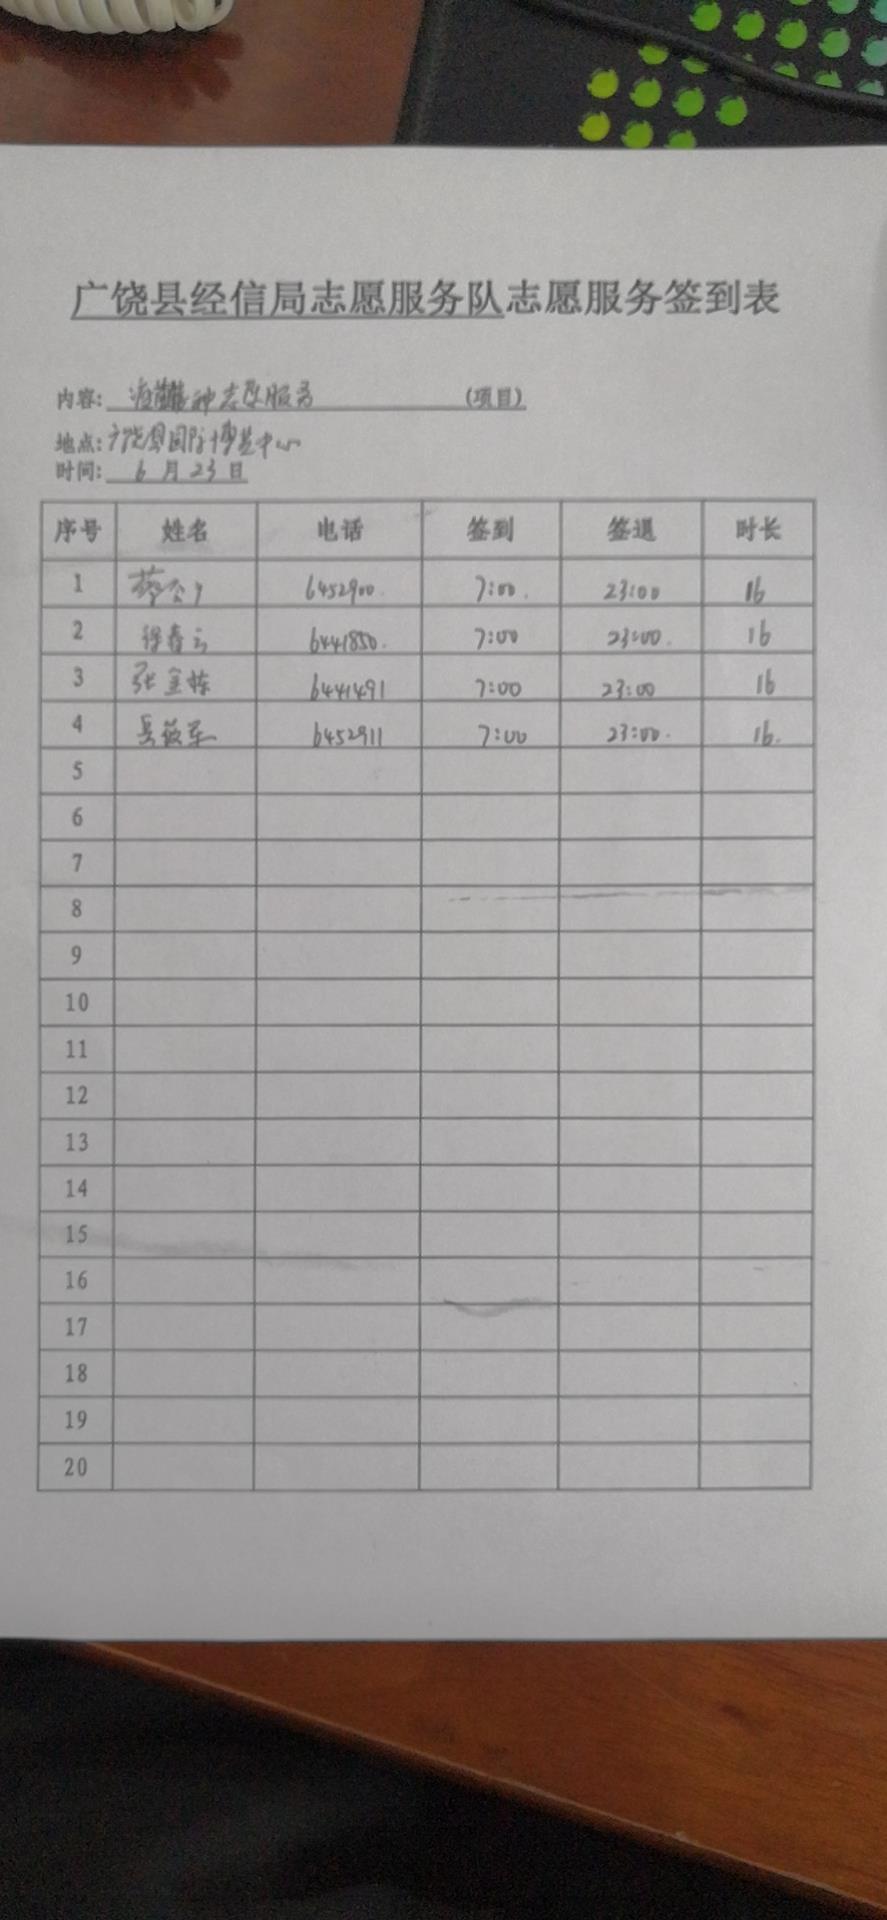 广饶县经信局志愿服务队志愿服务签到表
内容: 志愿服务 (项目)
地点: 广饶县国际博览中心
时间: 6 月 23 日
序号 姓名 电话 签到 签退 时长
1 6452900. 7:00. 23:00 16
2 徐春云 6441850. 7:00 23:00. 16
3 张金栋 6441491 7:00 23:00 16
4 6452911 7:00 23:00. 16.
5
6
7
8
9
10
11
12
13
14
15
16
17
18
19
20